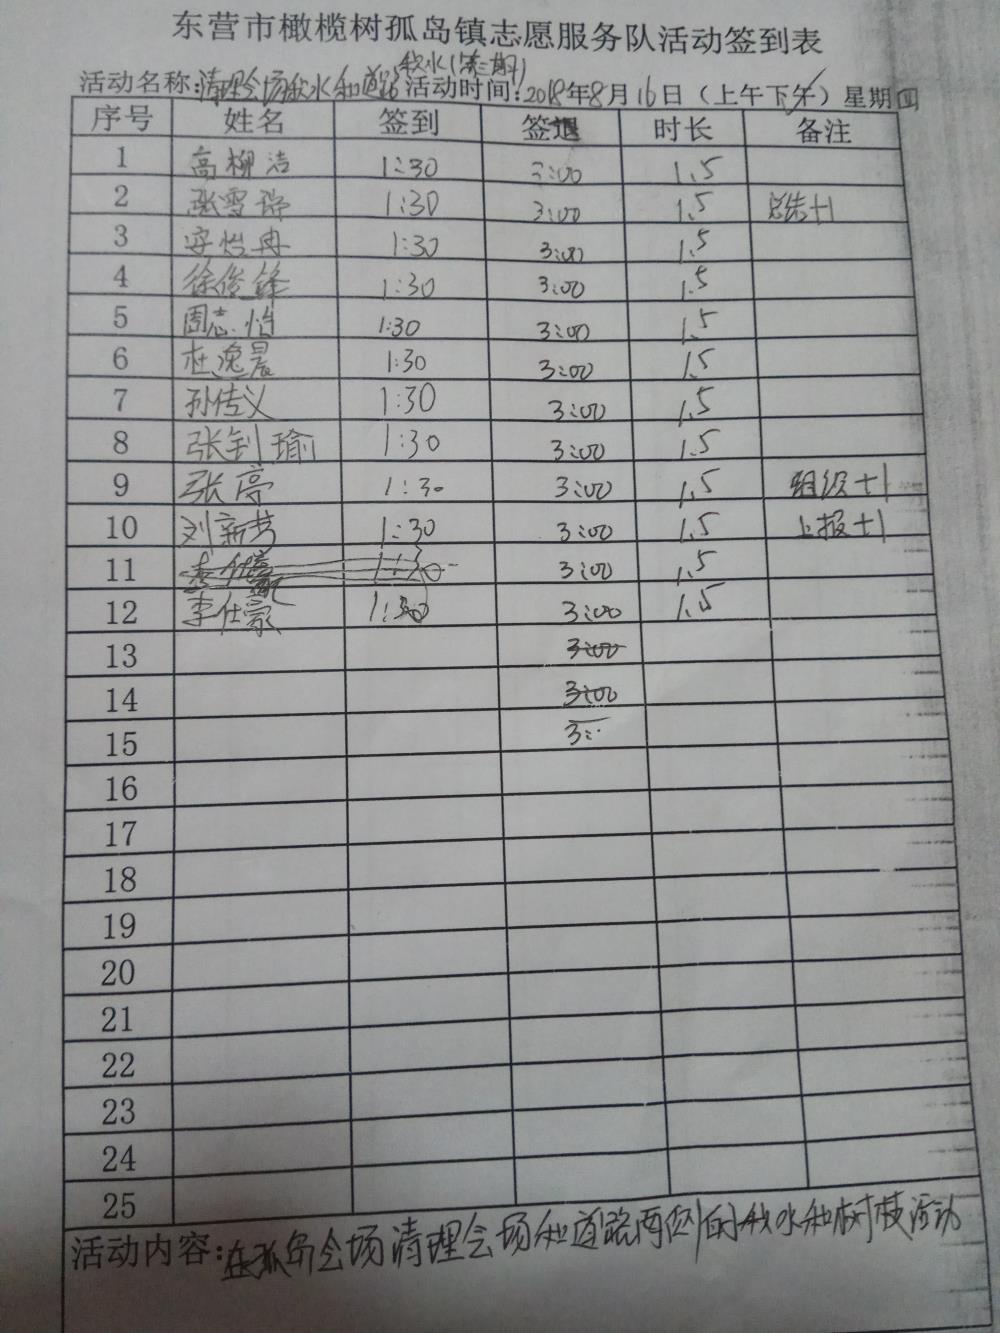 东营市橄榄树孤岛镇志愿服务队活动签到表
积水(第三期)
活动名称:清理会场积水和道路 活动时间:2018年8月16日（上午下午）星期四
序号 姓名 签到 签退 时长 备注
1 高柳洁 1:30 3:00 1.5
2 张雪瑞 1:30 3:00 1.5 总结+1
3 安怡冉 1:30 3:00 1.5
4 徐俊锋 1:30 3:00 1.5
5 周志怡 1:30 3:00 1.5
6 杜逸晨 1:30 3:00 1.5
7 孙传义 1:30 3:00 1.5
8 张钊瑜 1:30 3:00 1.5
9 张亭 1:30 3:00 1.5 组织+1
10 刘新梦 1:30 3:00 1.5 上报+1
11 3:00 1.5
12 李仕豪 1:30 3:00 1.5
13 3:00
14 3:00
15 3:
16
17
18
19
20
21
22
23
24
25
活动内容:在孤岛会场清理会场和道路两侧的积水和树枝活动